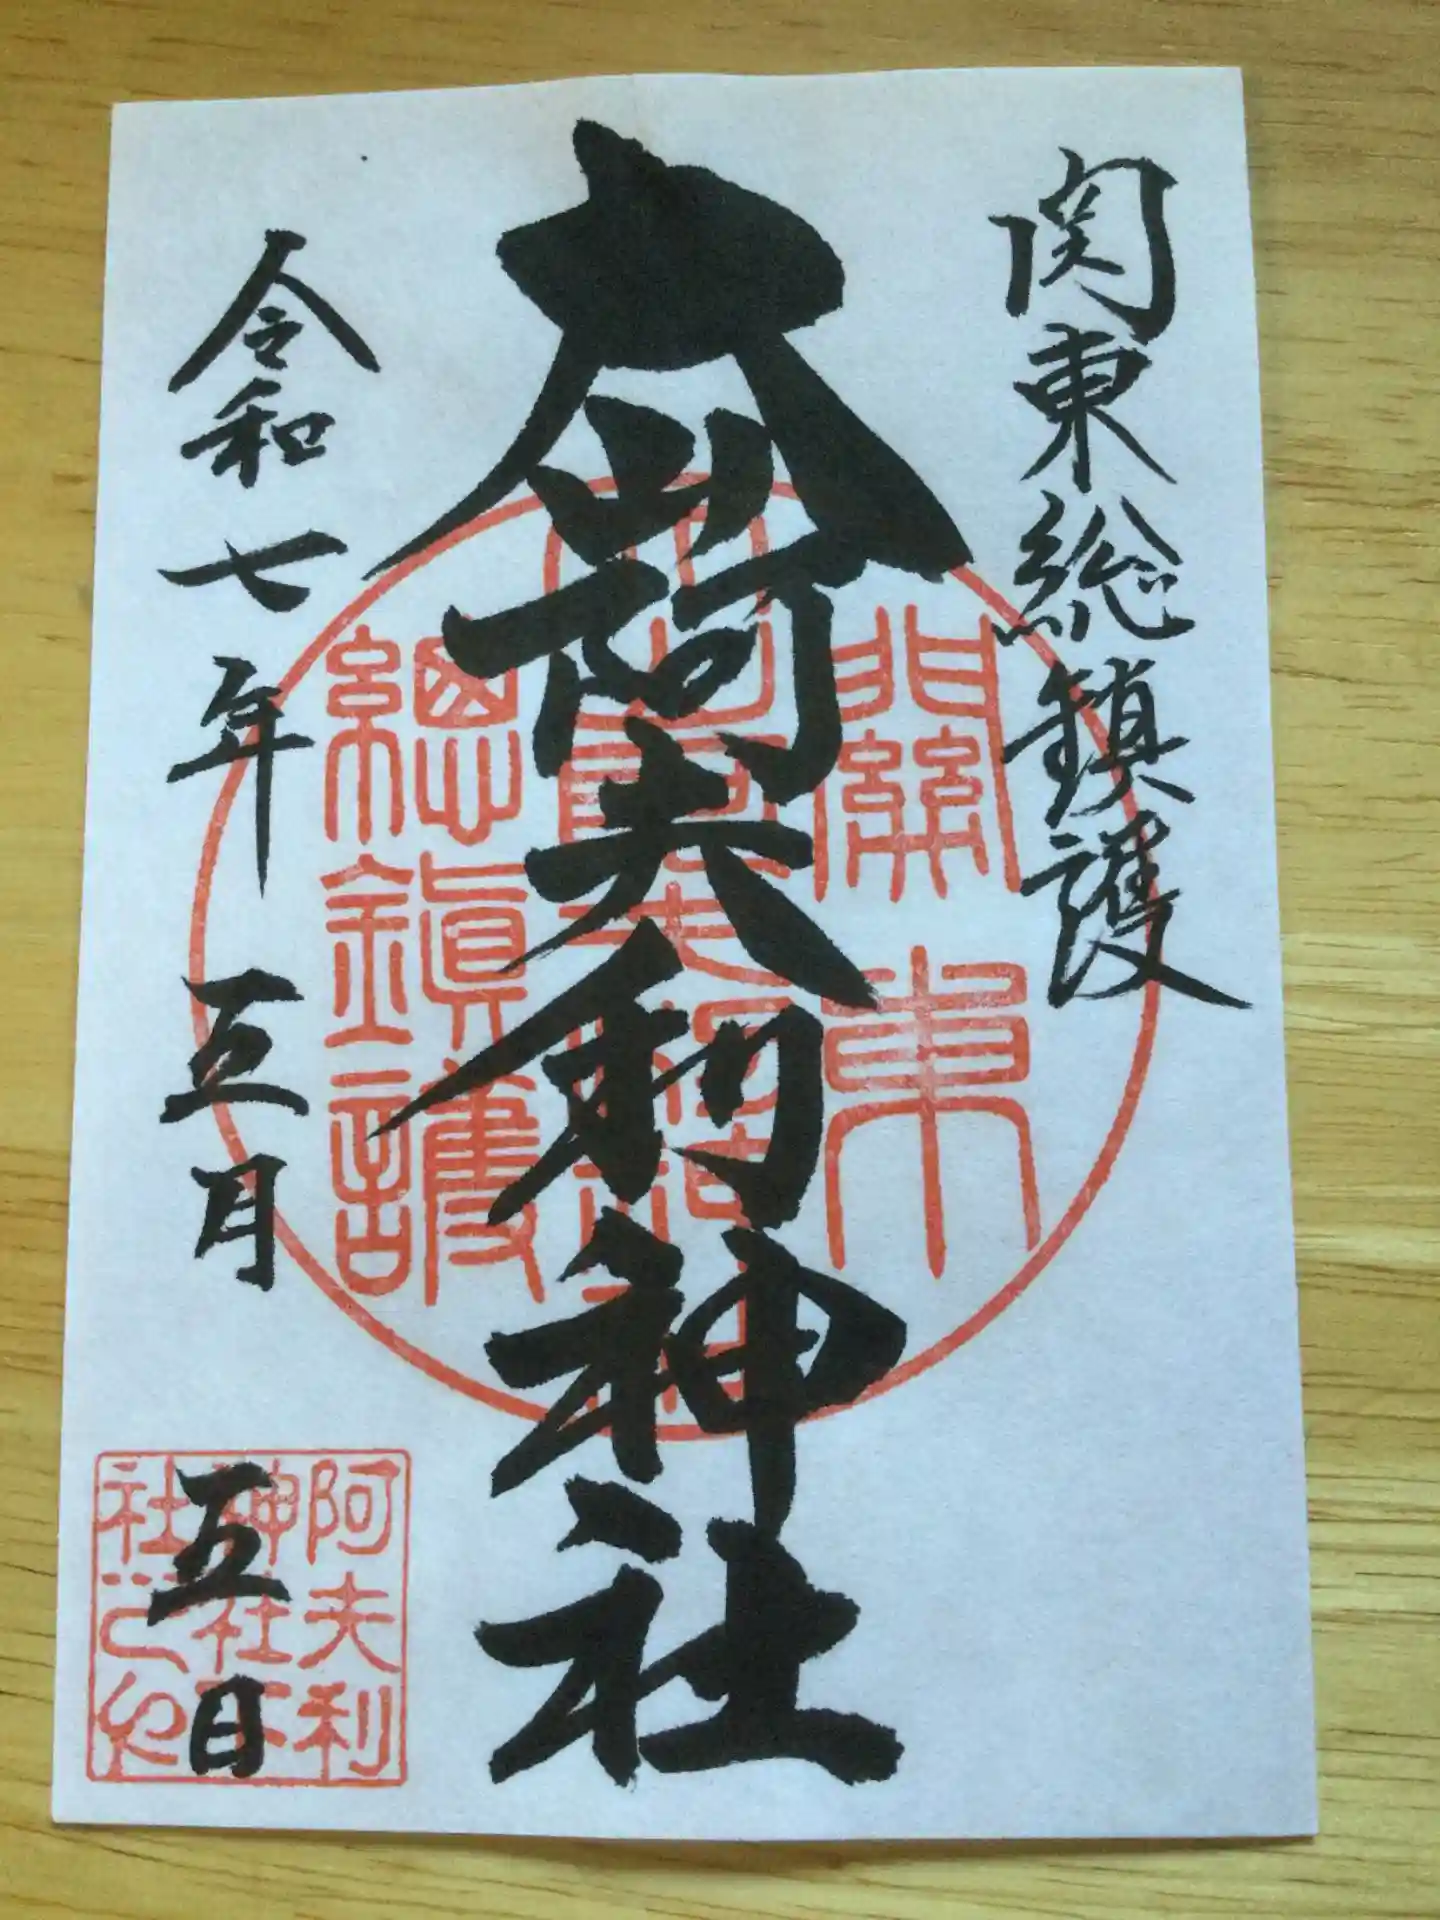 関東総鎮護
大山阿夫利神社
令和七年五月五日
關東
總鎭護
阿夫利
神社下
社之印